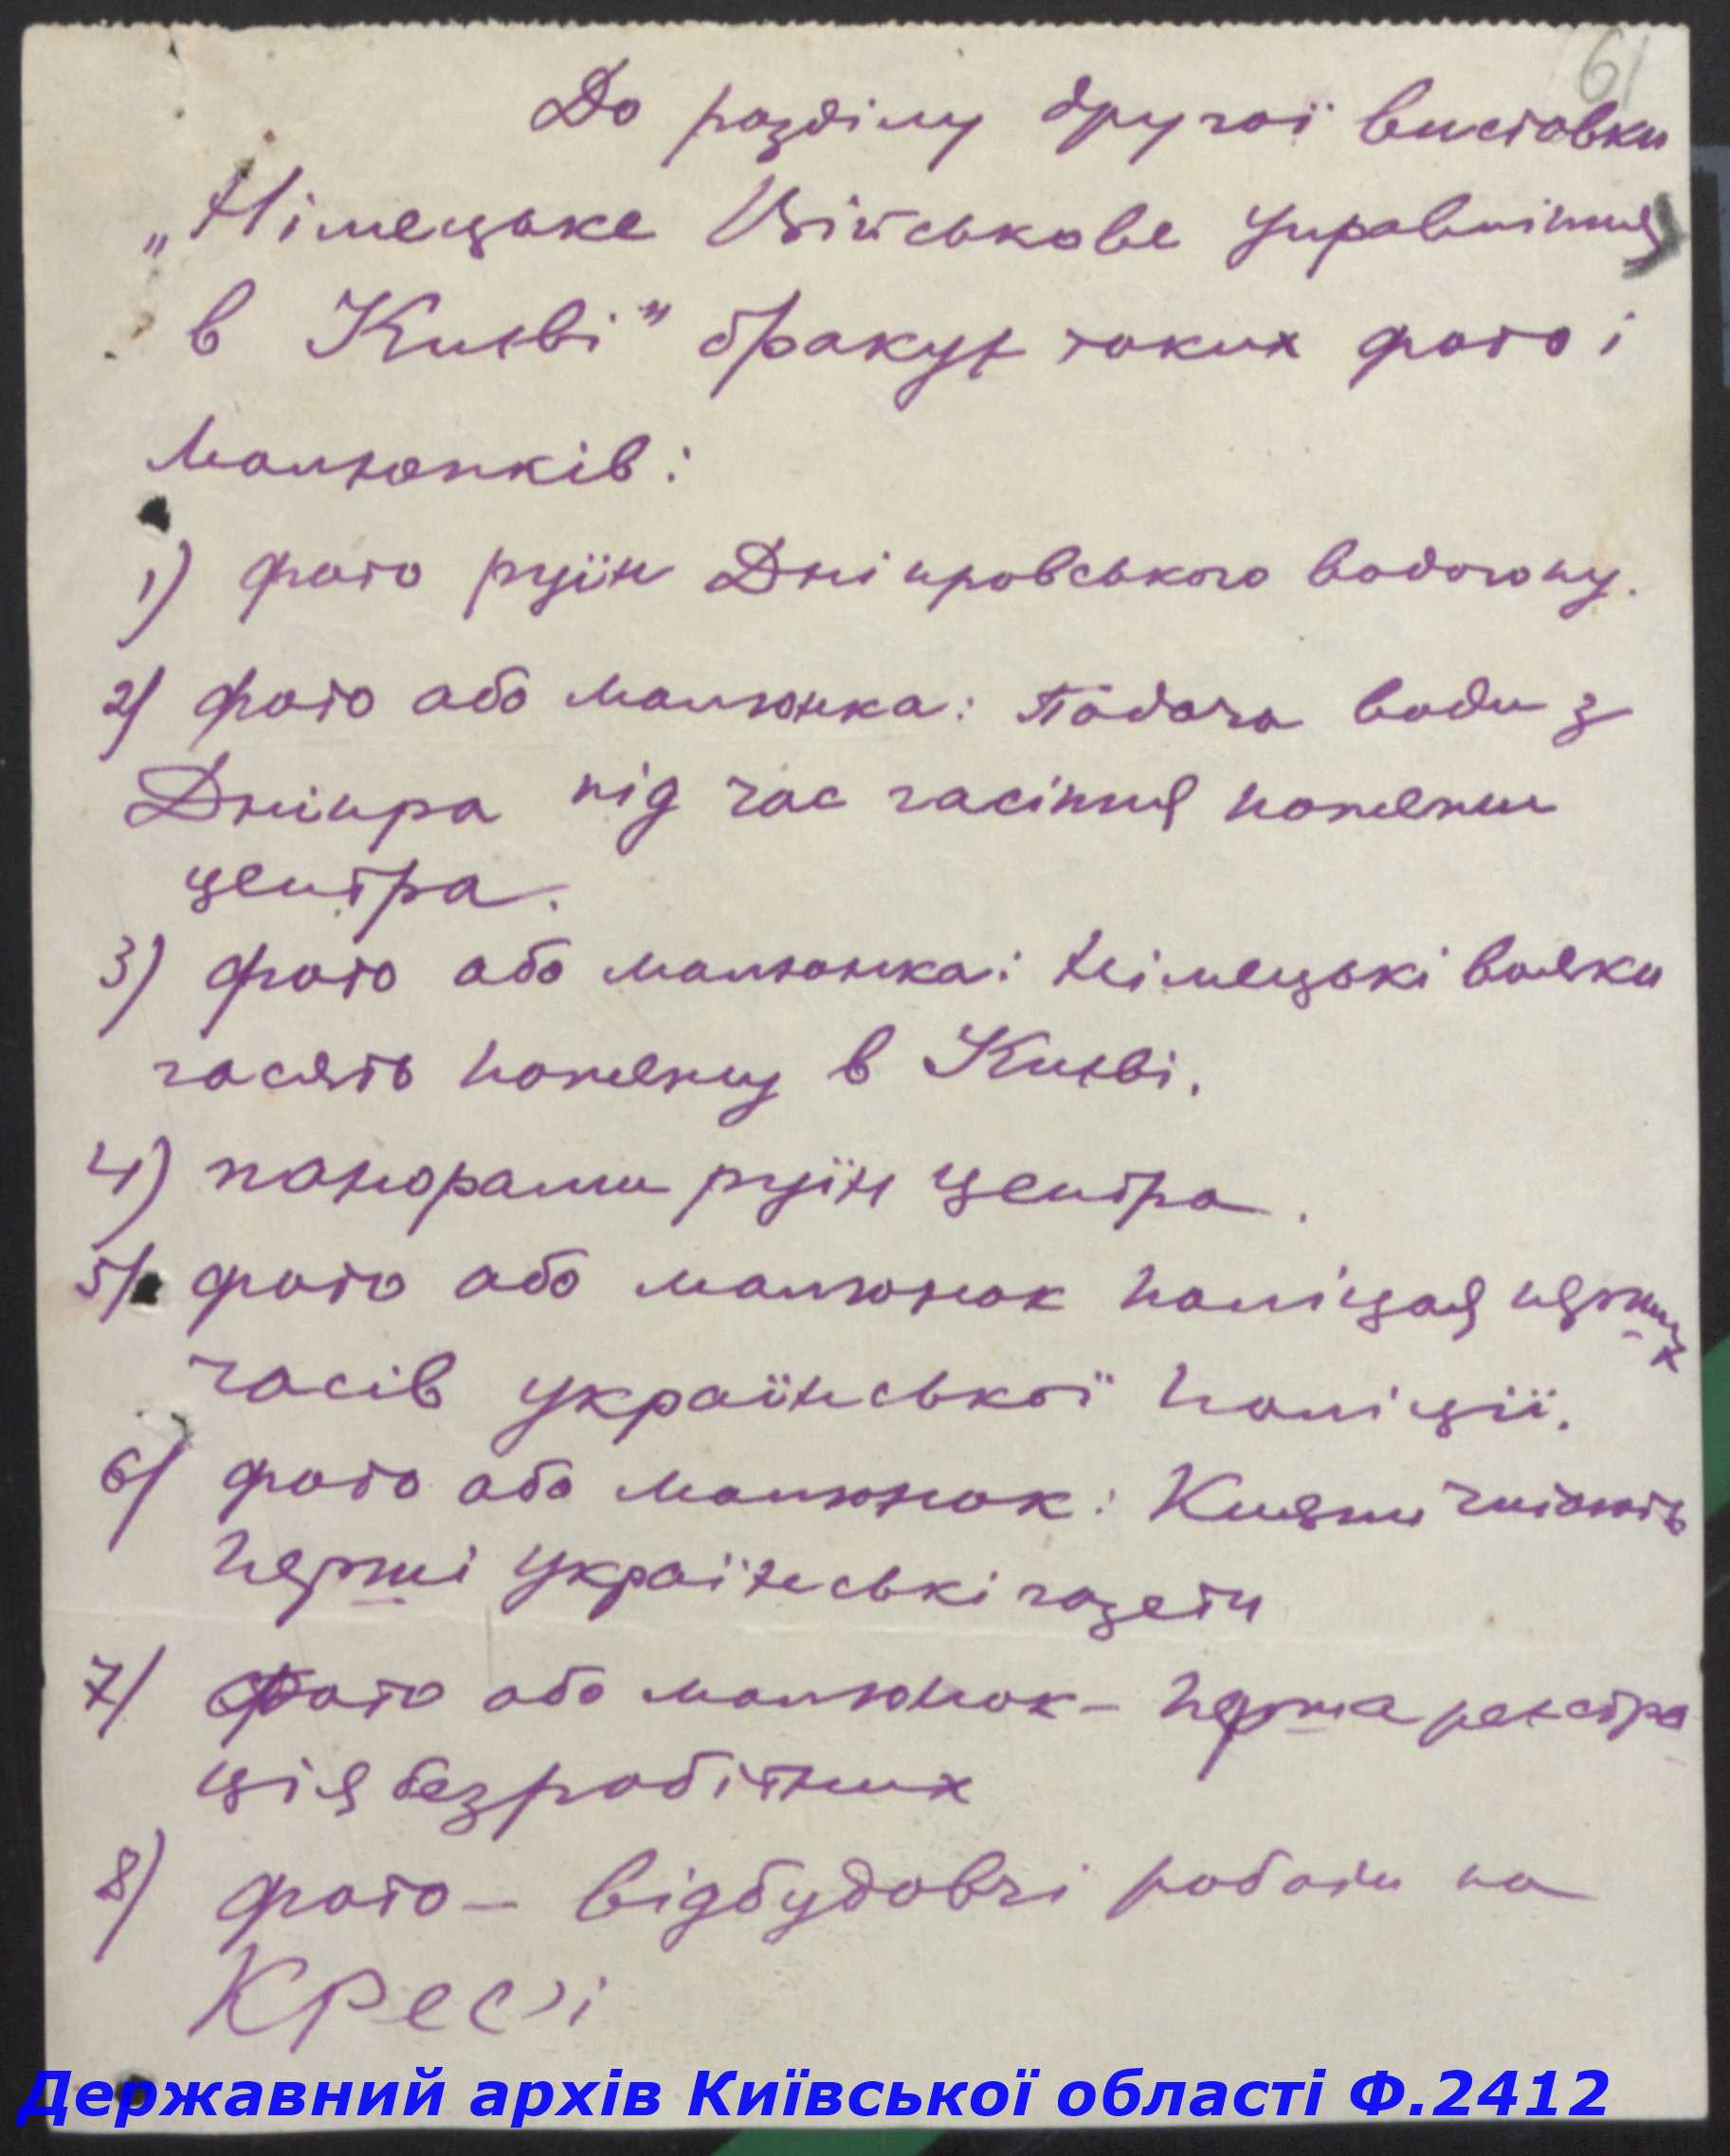 61
До розділу другої виставки
„Німецьке Військове Управління
в Києві" бракує таких фото і
малюнків:
1) фото руїн Дніпровського водогону.
2) фото або малюнка: Подача води з
Дніпра під час гасіння пожежи
центра.
3) фото або малюнка: Німецькі вояки
гасять пожежу в Києві.
4) панорами руїн центра.
5) фото або малюнок поліцая перших
часів української поліції.
6) фото або малюнок: Кияни читають
перші українські газети
7) Фото або малюнок – перша реєстра
ція безробітних
8) фото – відбудовчі роботи на
Державний архів Київської області Ф.2412